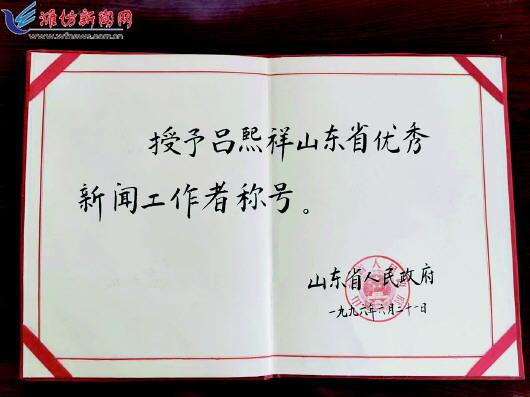 潍坊新闻网
www.wfnews.com.cn
授予吕熙祥山东省优秀
新闻工作者称号。
山东省人民政府
一九九六年六月二十一日